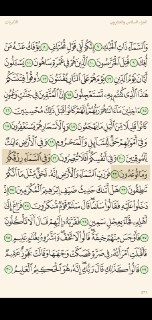 الذاريات الجزء السادس والعشرون
وَٱلسَّمَآءِ ذَاتِ ٱلْحُبُكِ ٧ إِنَّكُمْ لَفِى قَوْلٍ مُّخْتَلِفٍ ٨ يُؤْفَكُ عَنْهُ مَنْ
أُفِكَ ٩ قُتِلَ ٱلْخَرَّٰصُونَ ١٠ ٱلَّذِينَ هُمْ فِى غَمْرَةٍ سَاهُونَ ١١ يَسْـَٔلُونَ
أَيَّانَ يَوْمُ ٱلدِّينِ ١٢ يَوْمَ هُمْ عَلَى ٱلنَّارِ يُفْتَنُونَ ١٣ ذُوقُوا۟ فِتْنَتَكُمْ
هَٰذَا ٱلَّذِى كُنتُم بِهِۦ تَسْتَعْجِلُونَ ١٤ إِنَّ ٱلْمُتَّقِينَ فِى جَنَّٰتٍ وَعُيُونٍ
١٥ ءَاخِذِينَ مَآ ءَاتَىٰهُمْ رَبُّهُمْ إِنَّهُمْ كَانُوا۟ قَبْلَ ذَٰلِكَ مُحْسِنِينَ ١٦
كَانُوا۟ قَلِيلًا مِّنَ ٱلَّيْلِ مَا يَهْجَعُونَ ١٧ وَبِٱلْأَسْحَارِ هُمْ يَسْتَغْفِرُونَ ١٨
وَفِىٓ أَمْوَٰلِهِمْ حَقٌّ لِّلسَّآئِلِ وَٱلْمَحْرُومِ ١٩ وَفِى ٱلْأَرْضِ ءَايَٰتٌ
لِّلْمُوقِنِينَ ٢٠ وَفِىٓ أَنفُسِكُمْ أَفَلَا تُبْصِرُونَ ٢١ وَفِى ٱلسَّمَآءِ رِزْقُكُمْ
وَمَا تُوعَدُونَ ٢٢ فَوَرَبِّ ٱلسَّمَآءِ وَٱلْأَرْضِ إِنَّهُۥ لَحَقٌّ مِّثْلَ مَآ أَنَّكُمْ
تَنطِقُونَ ٢٣ هَلْ أَتَىٰكَ حَدِيثُ ضَيْفِ إِبْرَٰهِيمَ ٱلْمُكْرَمِينَ ٢٤ إِذْ
دَخَلُوا۟ عَلَيْهِ فَقَالُوا۟ سَلَٰمًا قَالَ سَلَٰمٌ قَوْمٌ مُّنكَرُونَ ٢٥ فَرَاغَ إِلَىٰٓ
أَهْلِهِۦ فَجَآءَ بِعِجْلٍ سَمِينٍ ٢٦ فَقَرَّبَهُۥٓ إِلَيْهِمْ قَالَ أَلَا تَأْكُلُونَ
٢٧ فَأَوْجَسَ مِنْهُمْ خِيفَةً قَالُوا۟ لَا تَخَفْ وَبَشَّرُوهُ بِغُلَٰمٍ عَلِيمٍ ٢٨
فَأَقْبَلَتِ ٱمْرَأَتُهُۥ فِى صَرَّةٍ فَصَكَّتْ وَجْهَهَا وَقَالَتْ عَجُوزٌ عَقِيمٌ
٢٩ قَالُوا۟ كَذَٰلِكِ قَالَ رَبُّكِ إِنَّهُۥ هُوَ ٱلْحَكِيمُ ٱلْعَلِيمُ ٣٠
٥٢١